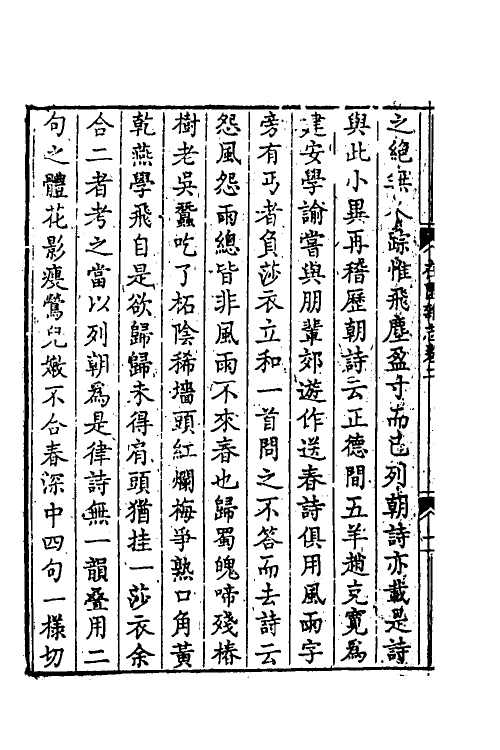 之絶無人踪惟飛塵盈寸而已列朝詩亦載是詩
與此小異再稽歷朝詩云正德間五羊趙克寛爲
建安學諭嘗與朋輩郊遊作送春詩俱用風雨字
旁有丐者負莎衣立和一首問之不答而去詩云
怨風怨雨總皆非風雨不來春也歸蜀魄啼殘椿
樹老吳蠶吃了柘陰稀墻頭紅爛梅爭熟口角黃
乾燕學飛自是欲歸歸未得肩頭猶挂一莎衣余
合二者考之當以列朝爲是律詩無一韻叠用二
句之體花影瘦鶯兒嫩不合春深中四句一樣切
在園雜志卷二